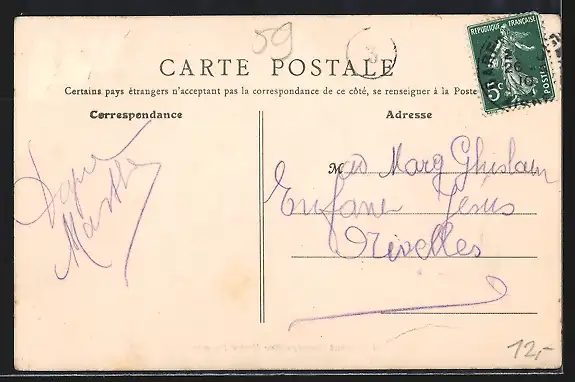 59
3
CARTE POSTALE
Certains pays étrangers n'acceptant pas la correspondance de ce côté, se renseigner à la Poste
REPUBLIQUE FRANÇAISE
5c
POSTES
26
10
Correspondance
Adresse
Marg Ghislain
Enfant Jésus
Nivelles
Marthe
12,-